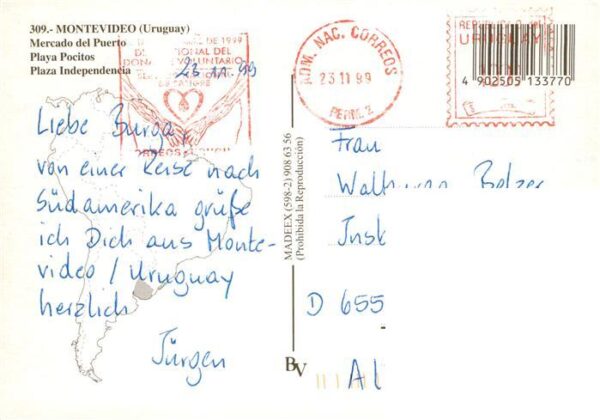 309.- MONTEVIDEO (Uruguay)
Mercado del Puerto
Playa Pocitos
Plaza Independencia
DE 1999
NACIONAL DEL
VOLUNTARIO
23.11.99
ADM. NAC. CORREOS
23 11 99
REPUBLICA
URUGUAY
4 902505 133770
Liebe Burga,
von einer Reise nach
Südamerika grüße
ich Dich aus Monte-
video / Uruguay
herzlich
Jürgen
MADEEX (598-2) 908 63 56
(Prohibida la Reproducción)
BV
Frau
Insk
D 655
Al